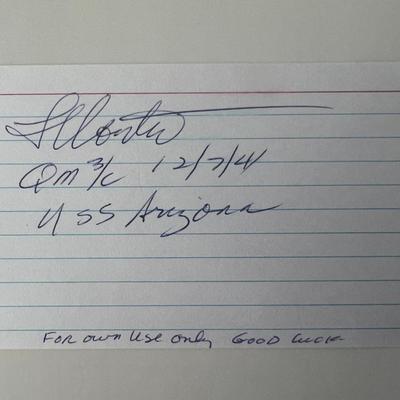 Conter
QM 3/c 12/7/41
USS Arizona
For own use only GOOD LUCK